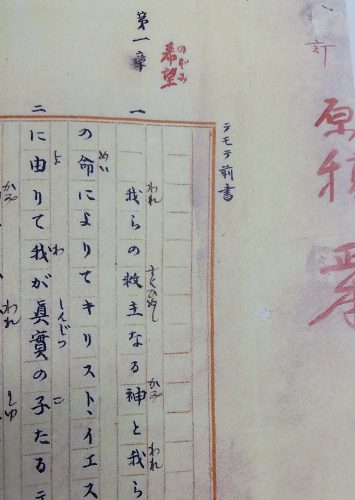 訂
原稿
テモテ前書
のぞみ
希望
第一章
われ すくひぬし かみ われ
一 我らの救主なる神と我ら
めい
の命によりてキリスト、イエス
よ わ しんじつ こ
二 に由りて我が眞實の子たるテ
かみ われ しゆ